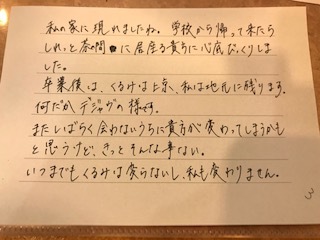 私の家に現れましたわ。学校から帰って来たら
しれっと昼の間 に居座る貴方に心底びっくりしま
した。
卒業後は、くるみは上京、私は地元に残ります。
何だか、デジャヴの様です。
またしばらく会わないうちに貴方が変わってしまうかも
と思うけど、きっとそんな事ない。
いつまでもくるみは変らないし、私も変わりません。
3